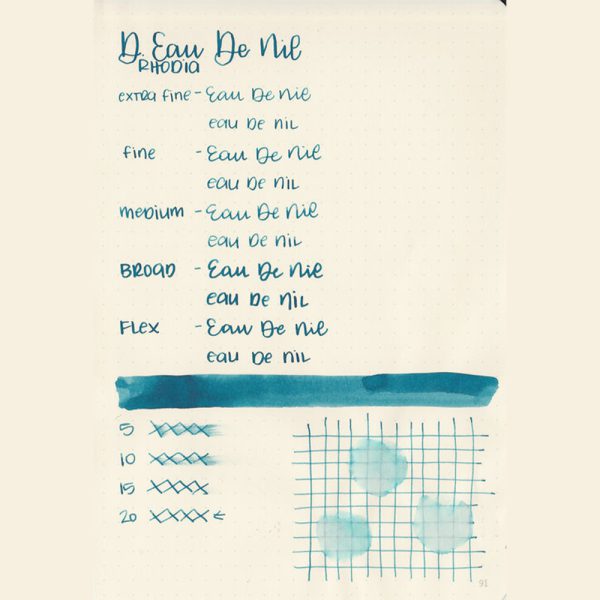 D. Eau De Nil
RHODIA
extra fine - Eau De Nil
eau De nil
fine - Eau De Nil
eau De nil
medium - Eau De Nil
eau De nil
BROAD - Eau De Nil
eau De nil
FLEX - Eau De Nil
eau De nil
5 XXXX
10 XXXX
15 XXXX
20 XXXX ←
91